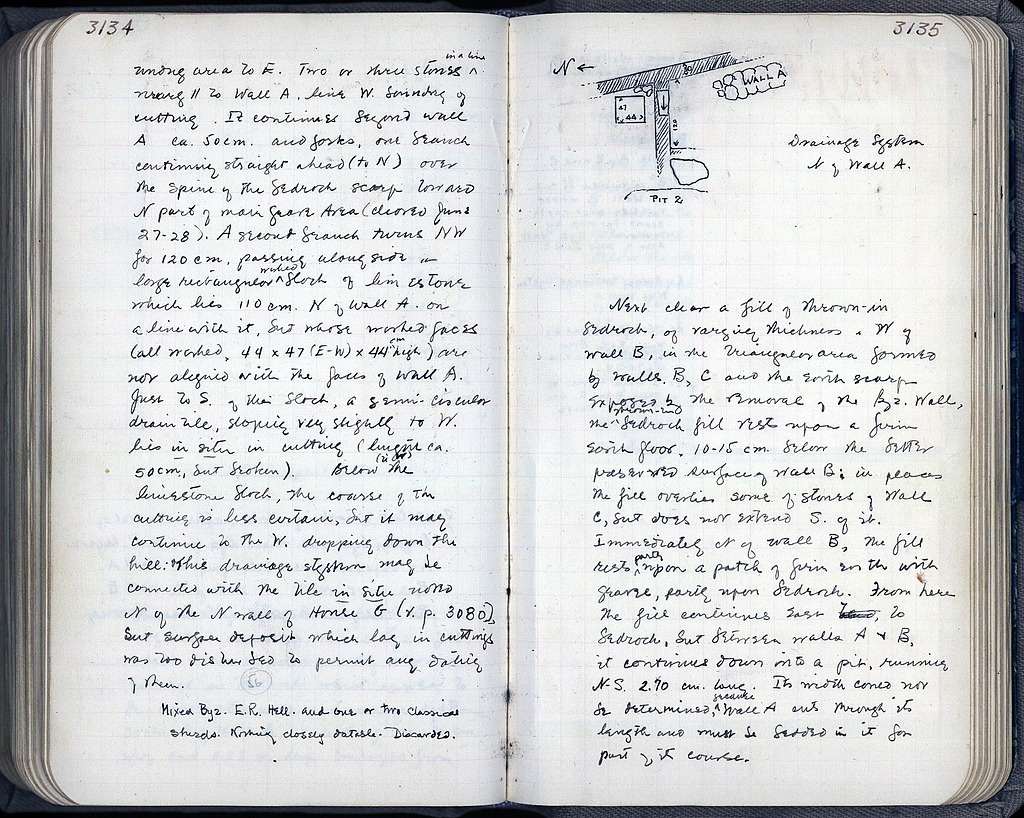 3134
wrong area to E. Two or three stones in a line
nearly || to Wall A, line W. boundary of
cutting. It continues beyond wall
A ca. 50cm. and forks, one branch
continuing straight ahead (to N) over
the spine of the bedrock scarp toward
N part of main Grave Area (cleared June
27-28). A second branch turns NW
for 120 cm. passing alongside a
large rectangular worked block of limestone
which lies 110 cm. N of Wall A. on
a line with it, but whose worked faces
(all worked, 44 x 47 (E-W) x 44 cm high) are
not aligned with the faces of Wall A.
Just to S. of this block, a semi-circular
drain tile, sloping very slightly to W.
lies in situ in cutting (length ca.
50cm, but broken). Below the
limestone block, the course of the
cutting is less certain, but it may
continue to the W. dropping down the
hill: this drainage system may be
connected with the tile in situ noted
N of the N wall of House G (v. p. 3080),
but surface deposit which lay in cuttings
was too disturbed to permit any dating
of them. 56
Mixed Byz. E.R. Hell. and one or two classical
sherds. Nothing closely datable. Discarded.
3135
N ←
WALL A
47
44
PIT 2
Drainage System
N of Wall A.
Next clear a fill of thrown-in
bedrock, of varying thickness, W of
wall B, in the triangular area formed
by walls B, C and the earth scarp
exposed by the removal of the Byz. Wall,
the thrown-in bedrock fill rests upon a firm
earth floor, 10-15 cm. below the better
preserved surface of wall B; in places
the fill overlies some of stones of Wall
C, but does not extend S. of it.
Immediately N of wall B, the fill
rests partly upon a patch of firm earth with
gravel, partly upon bedrock. From here
the fill continues East to
bedrock, but between walls A + B,
it continues down into a pit, running
N-S. 2.70 cm. long. Its width could not
be determined, because Wall A cuts through its
length and must be bedded in it for
part of its course.